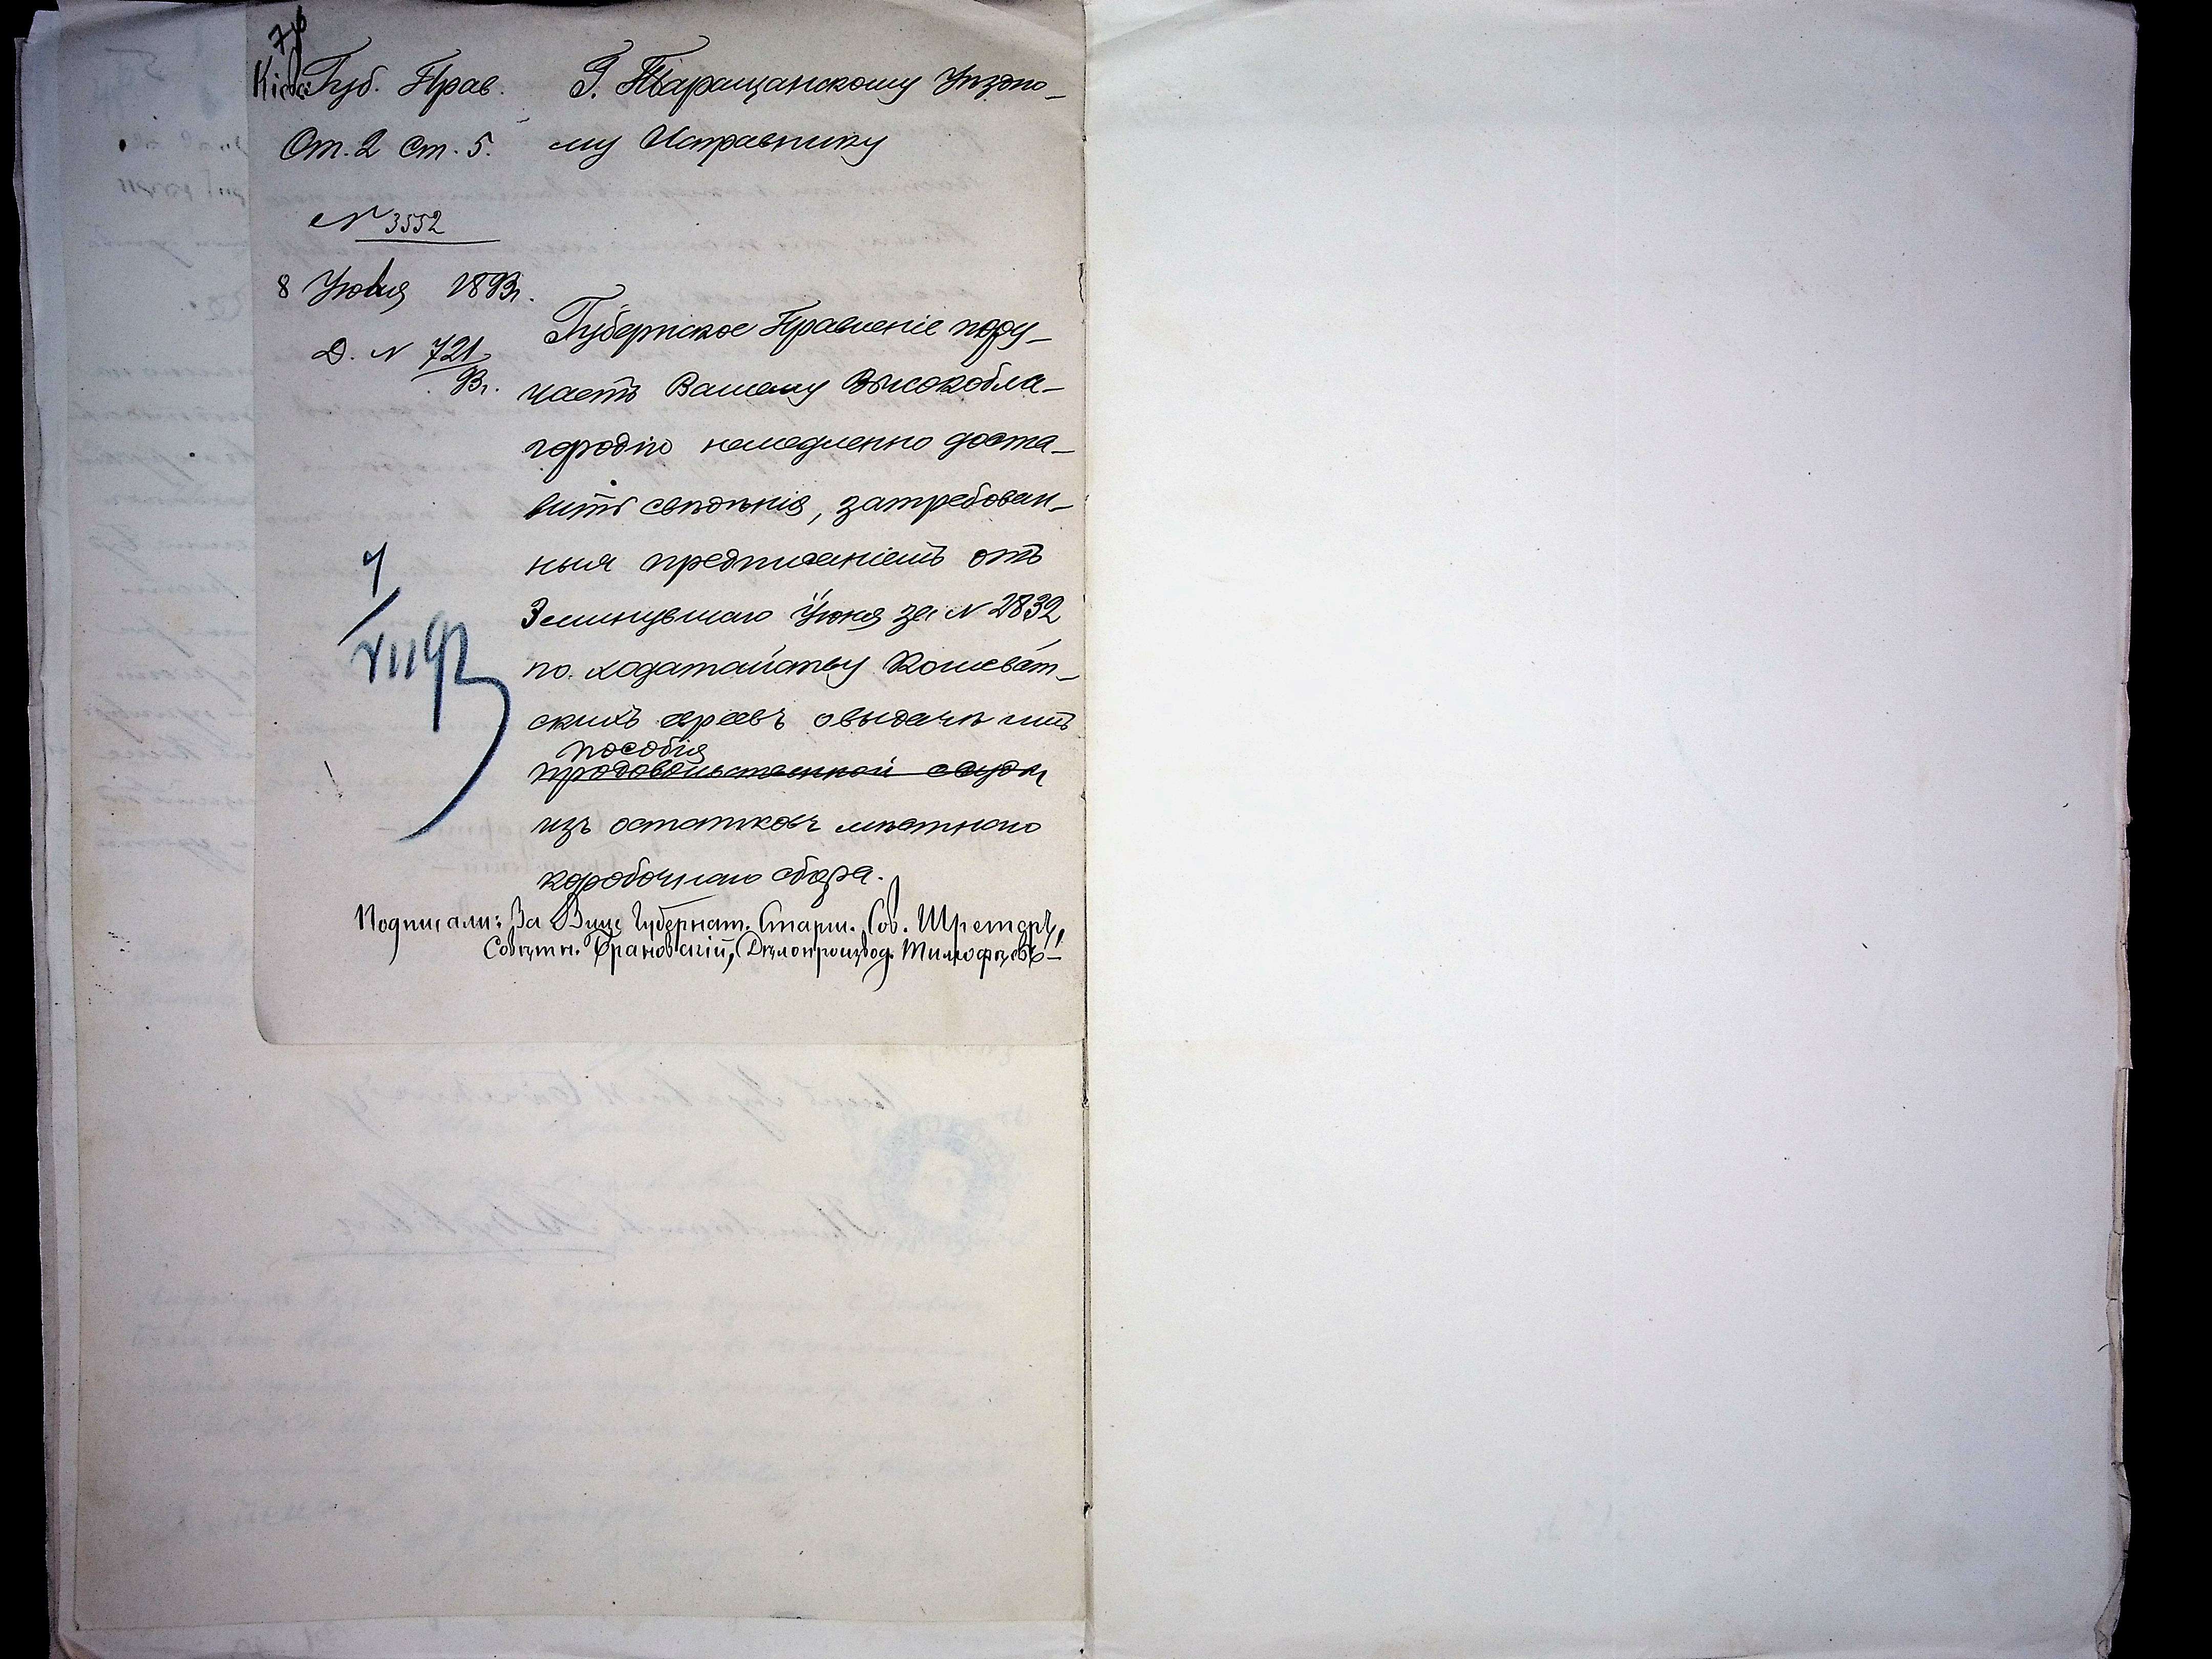 Кіевск. Губ. Прав.
От. 2 Ст. 5.
№ 3552
8 Іюля 1893г.
Д. № 721/93г.
Г. Таращанскому Уѣздно-
му Исправнику
Губернское Правленіе пору-
чаетъ Вашему Высокобла-
городію немедленно доста-
вить свѣдѣнія, затребован-
ныя предписаніемъ отъ
3 минувшаго Іюня за № 2832
по ходатайству Кошеват-
скихъ евреевъ о выдачѣ имъ
пособія
продовольственной ссуды
изъ остатковъ мѣстнаго
коробочнаго сбора.
Подписали: За Вице Губернат. Старш. Сов. Шретеръ,
Совѣтн. Брановскій, Дѣлопроизвод. Тимофѣевъ